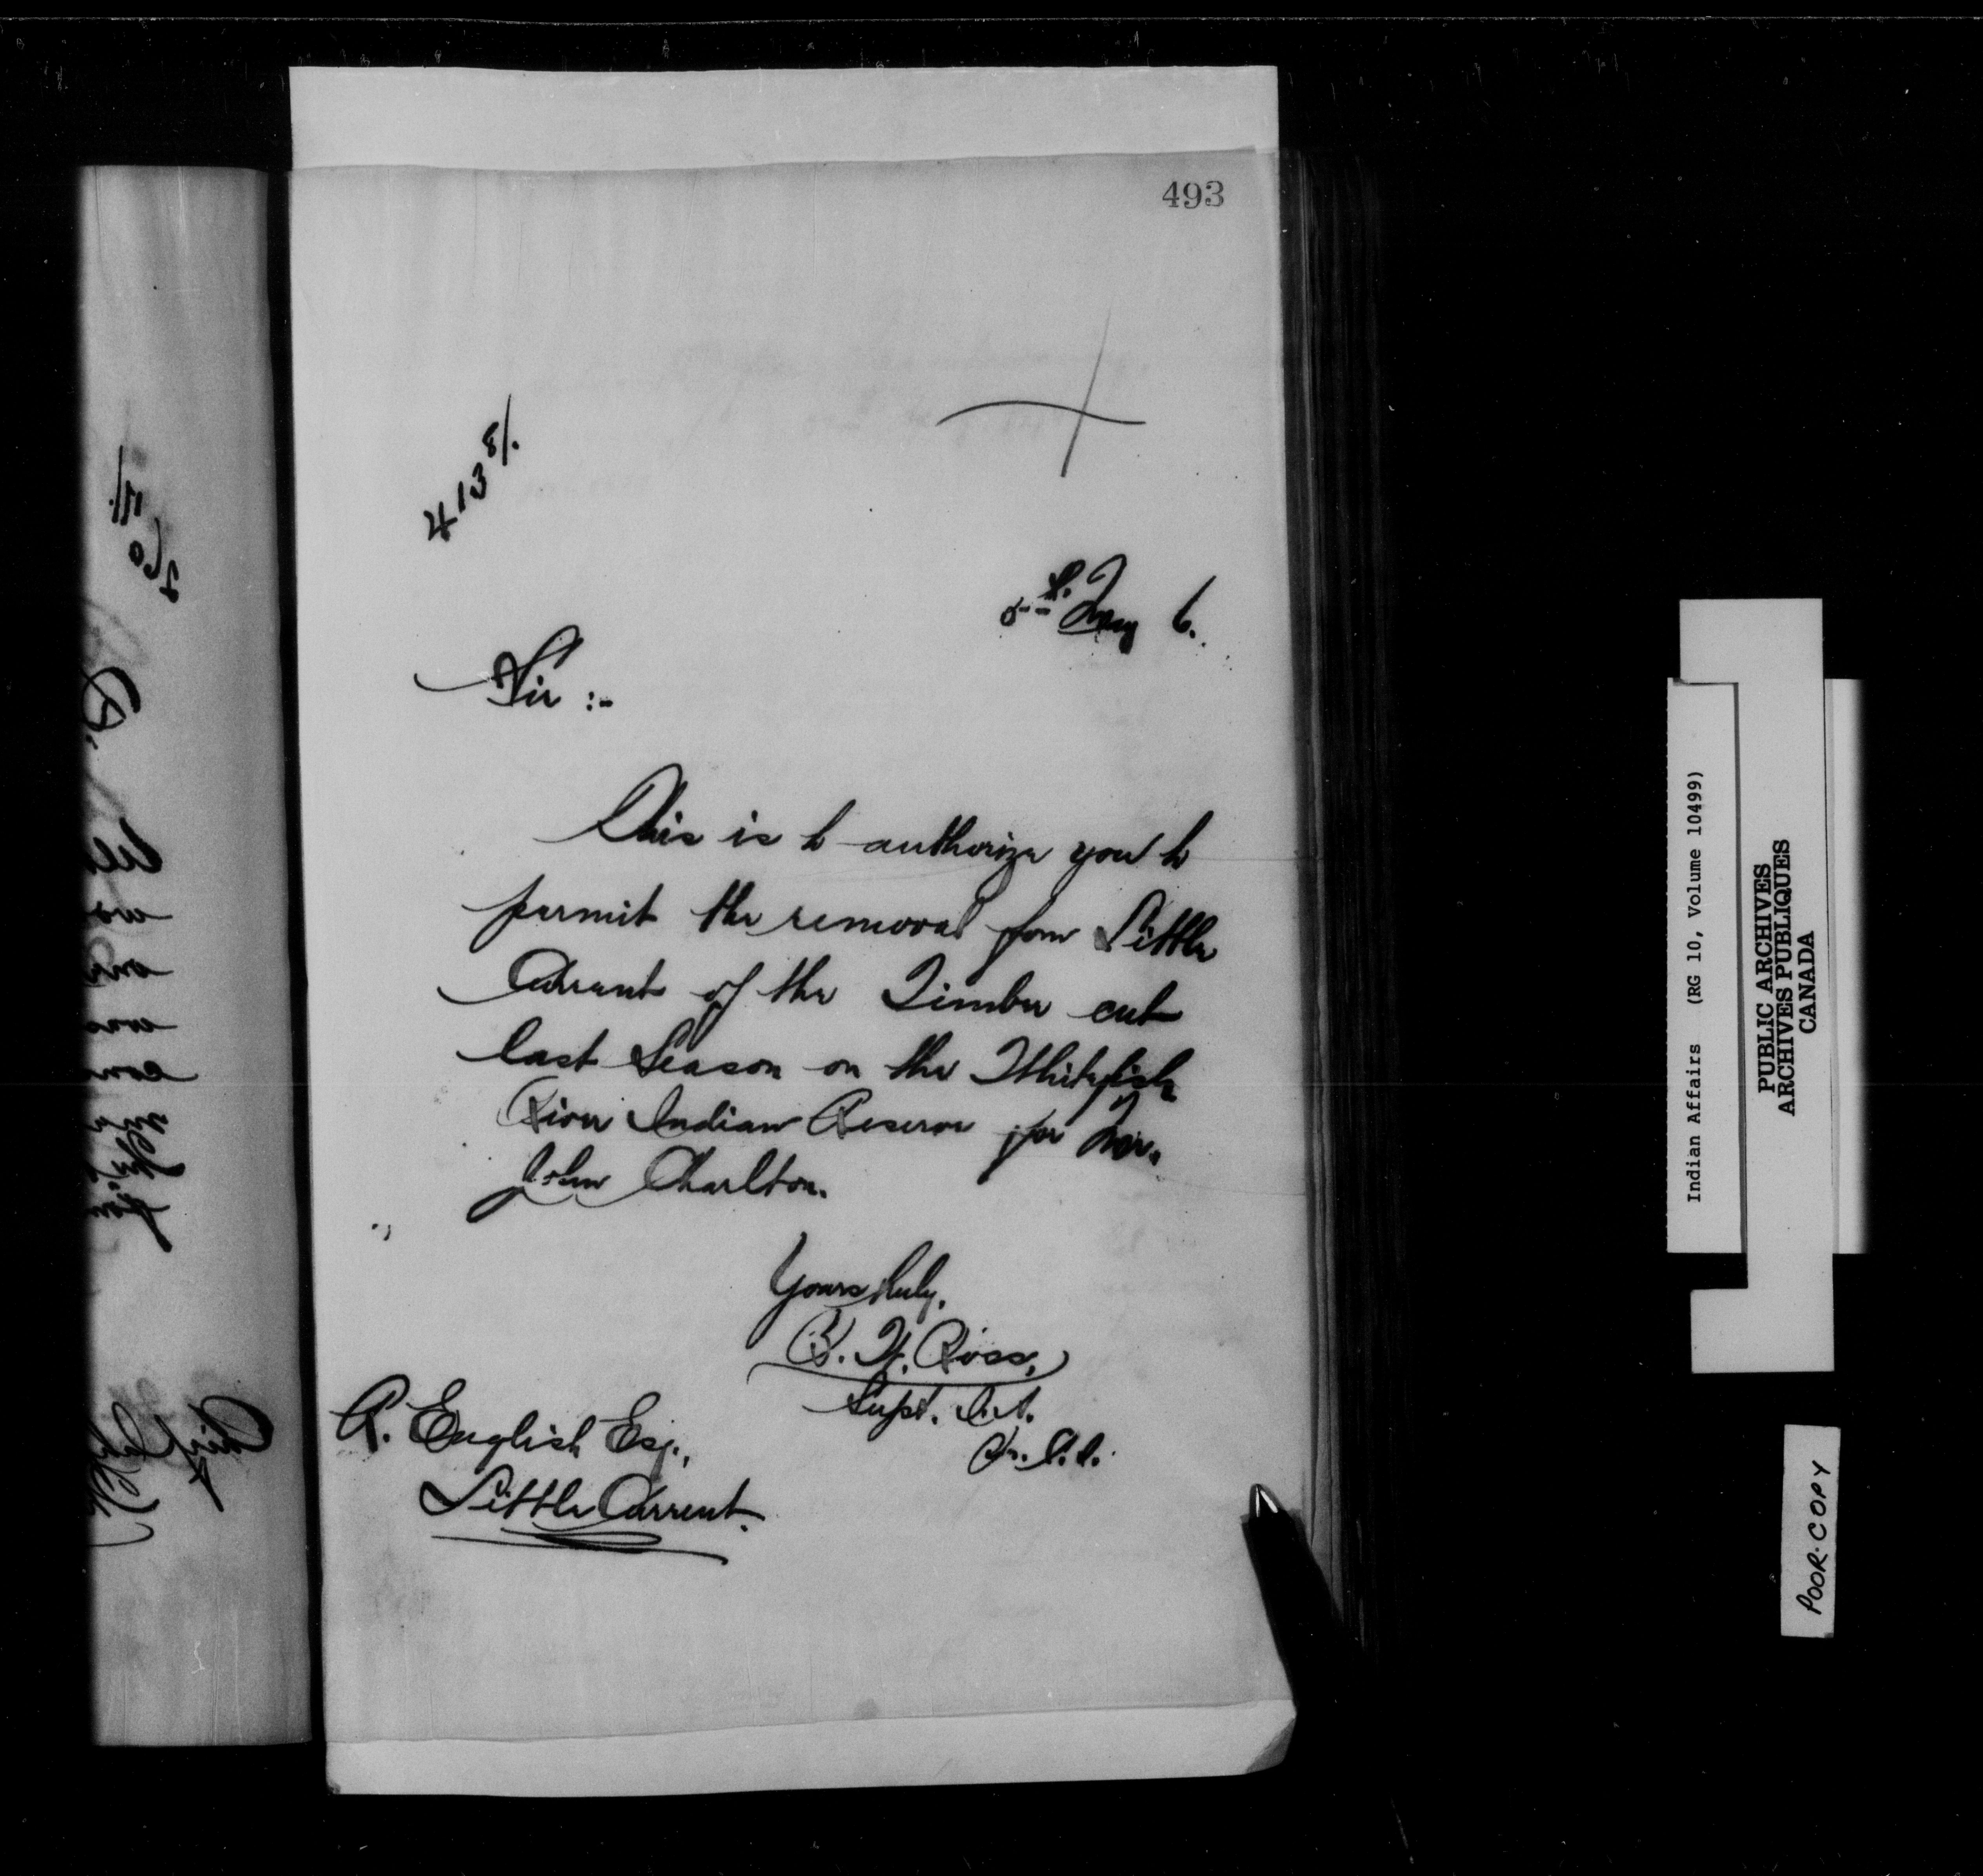 493
413 8/.
5th. May 6.
Sir :-
This is to authorize you to
permit the removal from Little
Current of the Timber cut
last Season on the Whitefish
River Indian Reserve for Mr.
John Charlton.
Yours truly,
B. W. Ross,
Supt. I.A.
R. English Esq.,
Little Current.
Indian Affairs (RG 10, Volume 10499)
PUBLIC ARCHIVES
ARCHIVES PUBLIQUES
CANADA
POOR-COPY